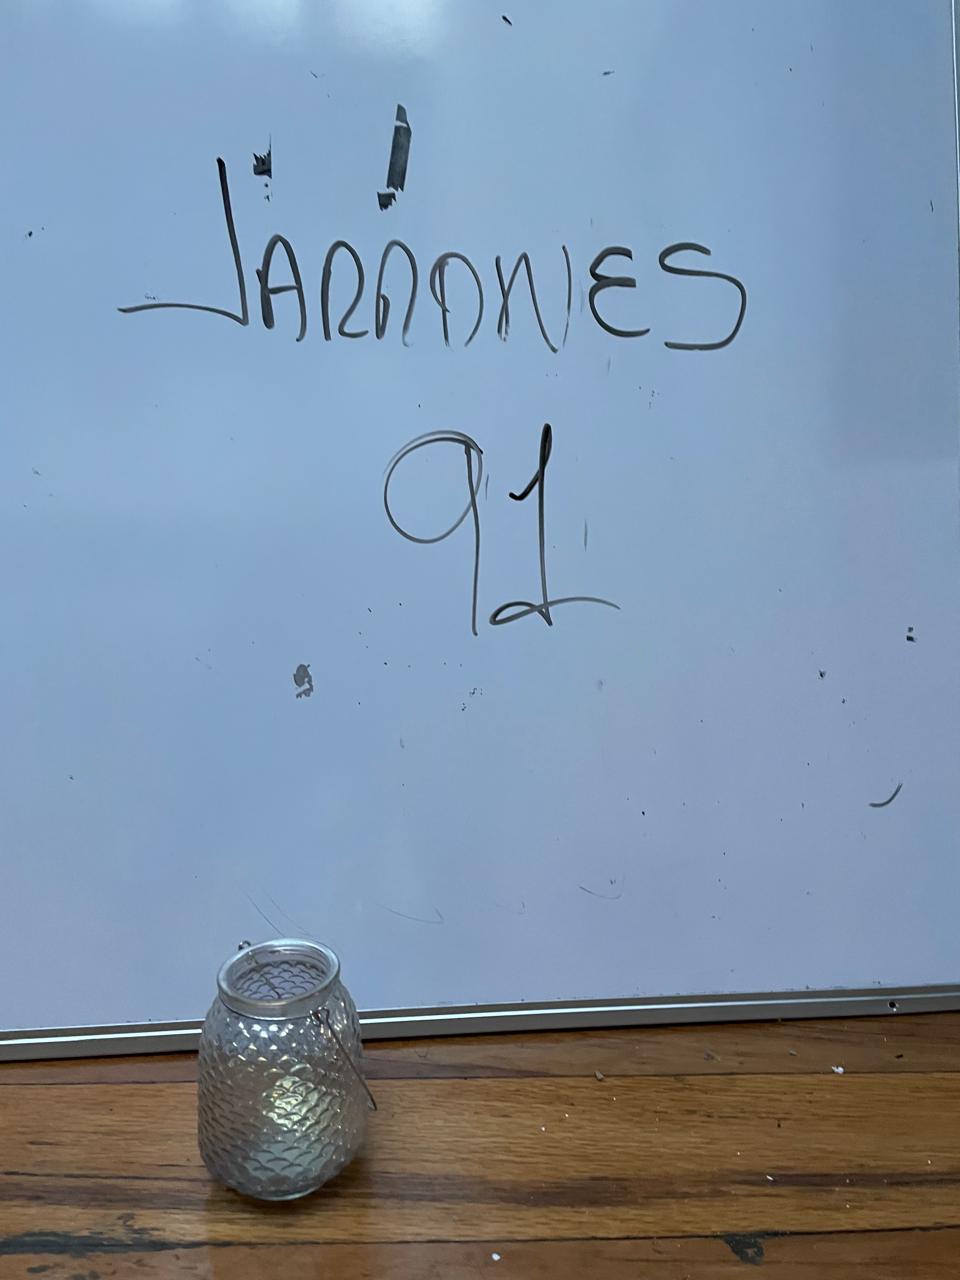 JARRONES
91